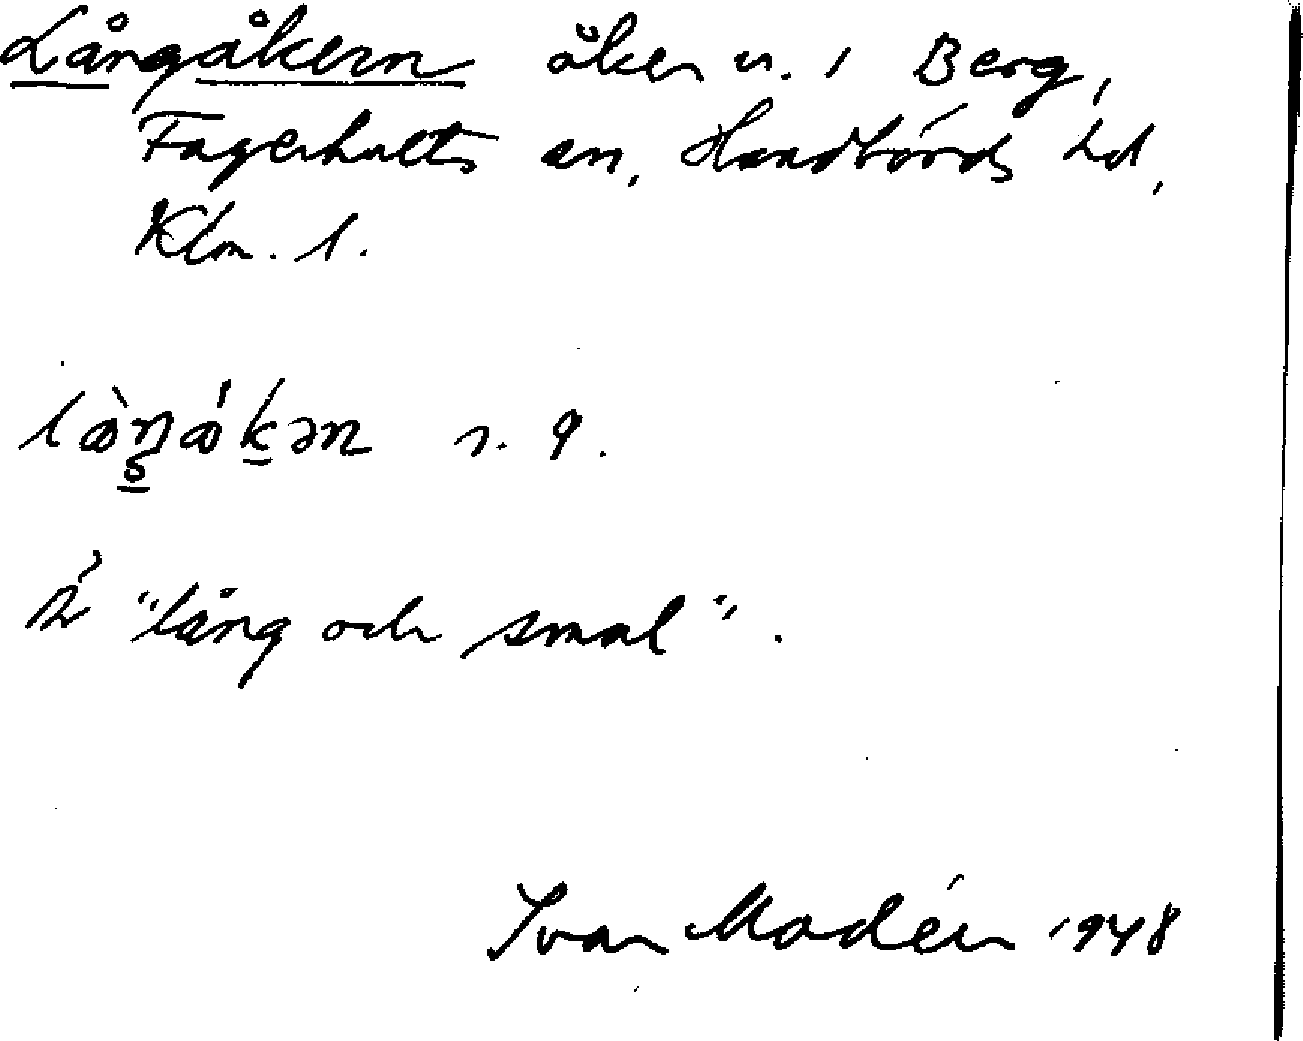 Långåkern åker n. i Berg,
Fagerhults sn, Handbörds hd,
Klm. l.
lå̀ŋǻkən s. 9.
är "lång och smal".
Ivar Modéer 1948